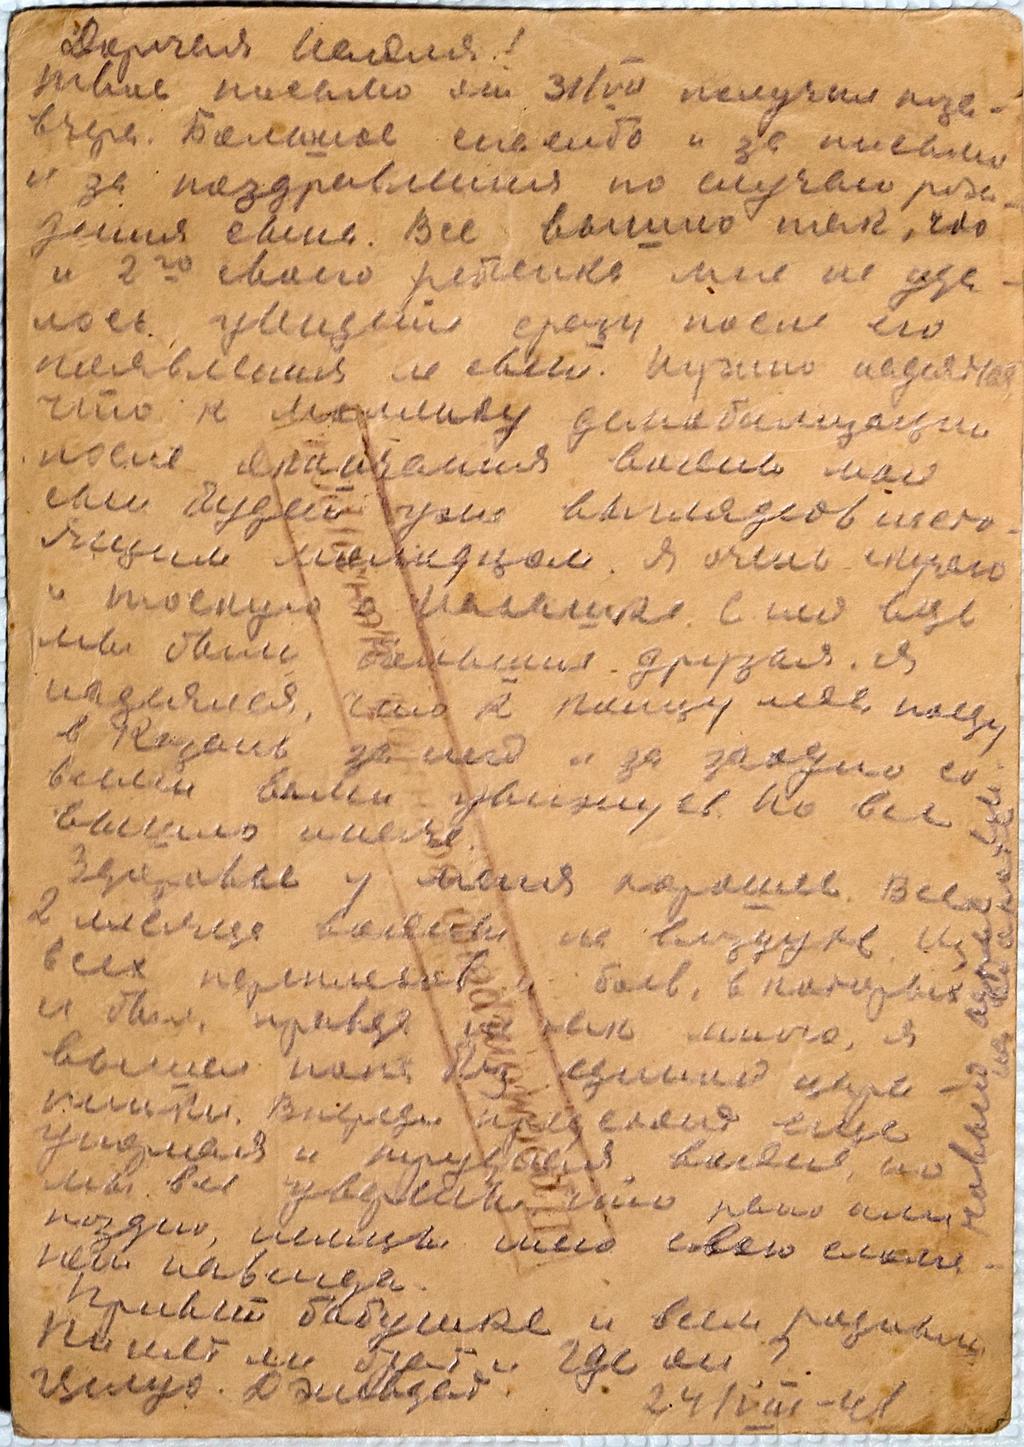 Дорогая
Твое письмо от 31/VII получил поза-
вчера. Большое спасибо и за письмо
и за поздравления по случаю рож-
дения сына. Все вышло так, что
и 2го своего ребенка мне не уда-
лось увидеть сразу после его
появления на свет. Нужно надеяться
что к моменту демобилизации
после окончания войны мой
сын будет уже выглядеть насто-
ящим молодцом. Я очень скучаю
и тоскую о С ней ведь
мы были большие друзья. Я
надеялся, что к концу мая поеду
в Казань за ней и за заодно со
всеми вами увижусь. Но все
вышло иначе.
Здоровье у меня хорошее. Все
2 месяца войны на воздухе. Из
всех переплетов и боев, в которых
я был, правда не так много, я
вышел пока без единой цара-
пинки. Впереди предстоит еще
упорная и трудная война, но
мы все уверены, что рано или
поздно, немцы
Привет бабушке и всем родным
Пишет ли брат и где он?
Целую. Джевдет
24/VIII-41
Просмотрено Военной Цензурой